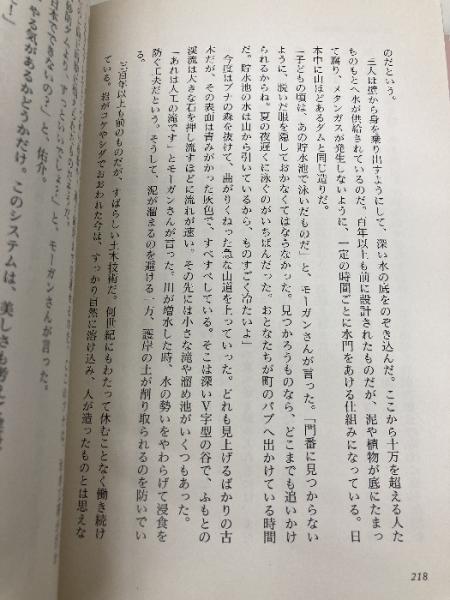 のだという。
三人は壁から身を乗り出すようにして、深い水の底をのぞき込んだ。ここから十万を超える人た
ちのもとへ水が供給されているのだ。百年以上も前に設計されたものだが、泥や植物が底にたまっ
て腐り、メタンガスが発生しないように、一定の時間ごとに水門をあける仕組みになっている。日
本中に山ほどあるダムと同じ造りだ。
「子どもの頃は、あの貯水池で泳いだものだ」と、モーガンさんが言った。「門番に見つからない
ように、脱いだ服を隠しておかなくてはならなかった。見つかろうものなら、どこまでも追いかけ
られるからね。夏の夜遅くに泳ぐのがいちばんだった。おとなたちが町のパブへ出かけている時間
だ。貯水池の水は山から引いているから、ものすごく冷たいよ」
今度はブナの森を抜けて、曲がりくねった急な山道を上っていった。どれも見上げるばかりの古
木だが、その表面は青みがかった灰色で、すべすべしている。そこは深いV字型の谷で、ふもとの
渓流は大きな石を押し流すほどに流れが速い。その先には小さな滝や溜め池がいくつもあった。
「あれは人工の滝です」とモーガンさんが言った。川が増水した時、水の勢いをやわらげて浸食を
防ぐ工夫だという。そうして、泥が溜まるのを避ける一方、護岸の土が削り取られるのを防いでい
る
三百年以上も前のものだが、すばらしい土木技術だ。何世紀にもわたって休むことなく働き続け
ている。岩がコケやシダでおおわれた今は、すっかり自然に溶け込み、人が造ったものとは思えな
218
と、佑介。
、モーガンさんが言った。
日本でできないの?」
やる気があるかどうかだけ。このシステムは、美しさも